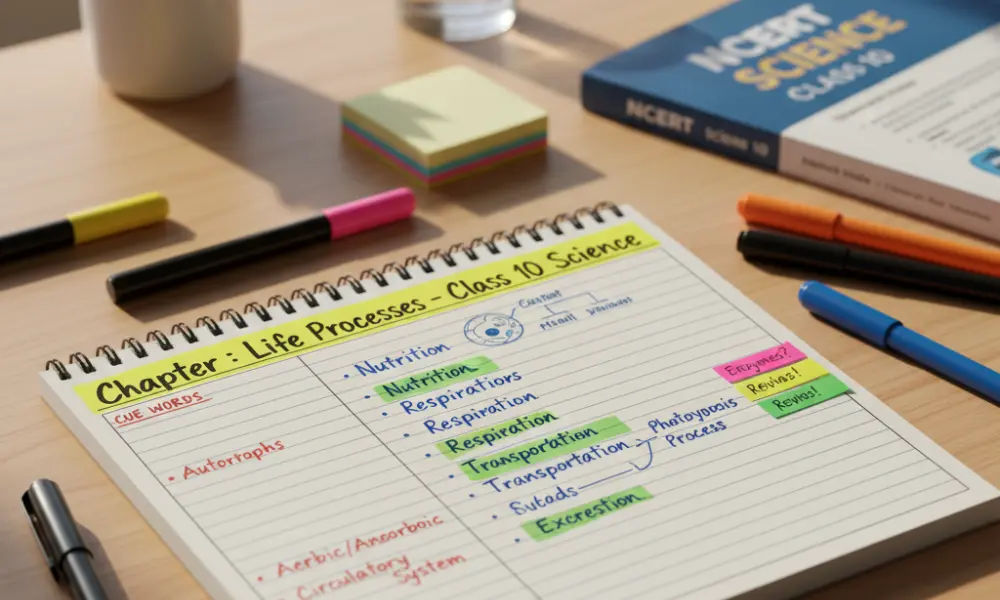 NCERT
SCIENCE
CLASS 10
NCERT
Chapter : Life Processes - Class 10 Science
CUE WORDS
• Autortaphs
• Aerbic/Anoorboic
Circulatory System
• Nutrition
Nutrition
• Respirations
• Respiration
Respiration
• Transportation
• Transportation
Photoyoosis
Process
• Sutads
• Excrestion
Enzymes?
Revius!
Revius!